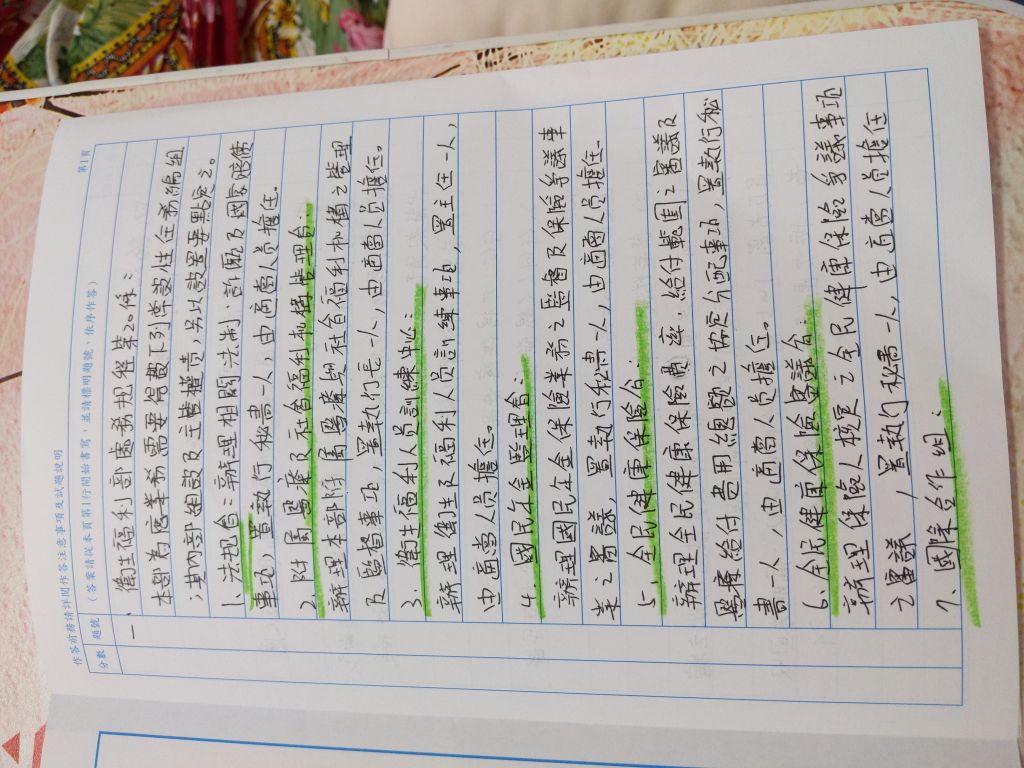 作答前務請詳閱作答注意事項及試題說明
第1頁
分數 題號 (答案請從本頁第1行開始書寫，並請標明題號，依序作答)
一、衛生福利部處務規程第20條：
本部為應業務需要得設下列常設性任務編組
，其內部組設及主管權責，另以設置要點定之。
1. 法規會：辦理相關法制、訴願及國家賠償
事項，置執行秘書一人，由適當人員擔任。
2. 附屬醫療及社會福利機構管理會：
辦理本部附屬醫療與社會福利機構之管理
及監督事項，置執行長一人，由適當人員擔任。
3. 衛生福利人員訓練中心：
辦理衛生及福利人員訓練事項，置主任一人，
由適當人員擔任。
4. 國民年金監理會：
辦理國民年金保險業務之監督及保險爭議事
業之審議，置執行秘書一人，由適當人員擔任。
5. 全民健康保險會：
辦理全民健康保險費率、給付範圍之審議及
醫療給付費用總額之協定分配事項，置執行秘
書一人，由適當人員擔任。
6. 全民健康保險爭議會：
辦理保險人核定之全民健康保險爭議事項
之審議，置執行秘書一人，由適當人員擔任
7. 國際合作組：